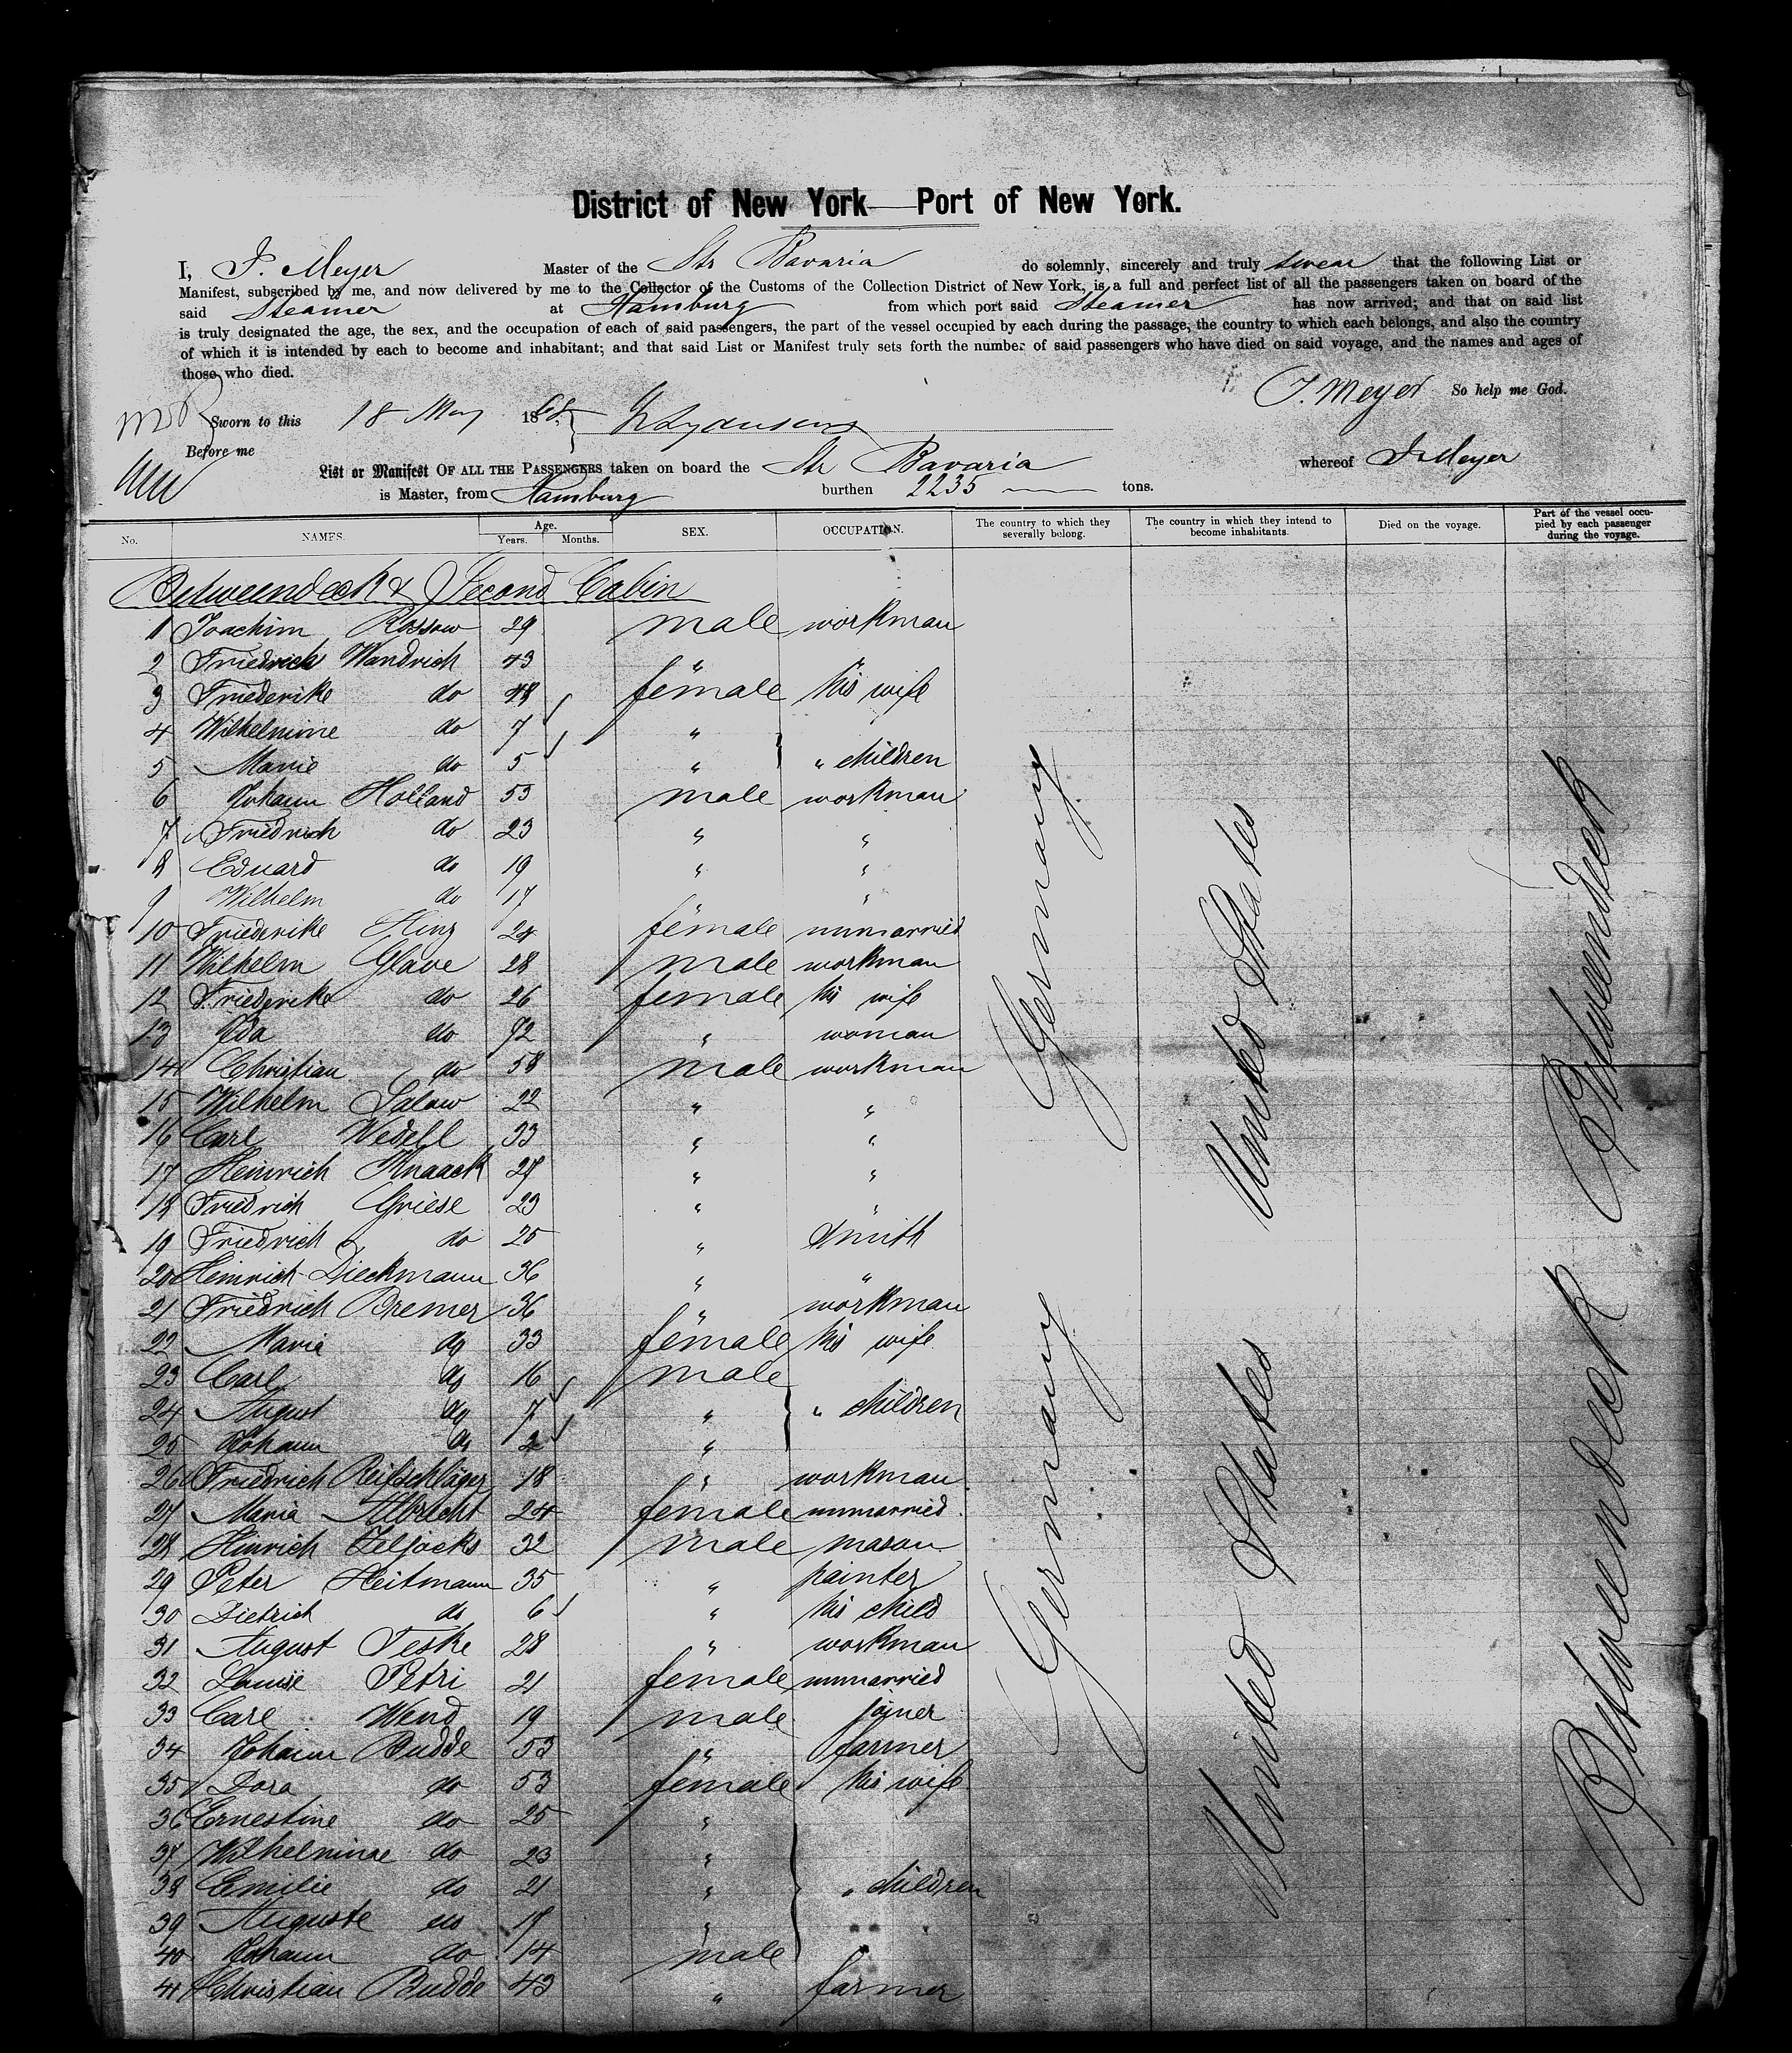 District of New York—Port of New York.
I, J. Meyer Master of the Str Bavaria do solemnly, sincerely and truly swear that the following List or
Manifest, subscribed by me, and now delivered by me to the Collector of the Customs of the Collection District of New York, is a full and perfect list of all the passengers taken on board of the
said Steamer at Hamburg from which port said Steamer has now arrived; and that on said list
is truly designated the age, the sex, and the occupation of each of said passengers, the part of the vessel occupied by each during the passage, the country to which each belongs, and also the country
of which it is intended by each to become and inhabitant; and that said List or Manifest truly sets forth the number of said passengers who have died on said voyage, and the names and ages of
those who died.
J. Meyer So help me God.
Sworn to this 18 May 18
Before me
List or Manifest OF ALL THE PASSENGERS taken on board the Str Bavaria whereof J. Meyer
is Master, from Hamburg burthen 2235 tons.
No. NAMES. Age. Years. Months. SEX. OCCUPATION. The country to which they severally belong. The country in which they intend to become inhabitants. Died on the voyage. Part of the vessel occupied by each passenger during the voyage.
Betweendeck & Second Cabin
1 Joachim Rossow 29 male workman
2 Friedrich Wandrich 43 " "
3 Friederike do 48 female his wife
4 Wilhelmine do 7 "
5 Marie do 5 " " children
6 Johann Holland 53 male workman
7 Friedrich do 23 " "
8 Eduard do 19 " "
9 Wilhelm do 17 " "
10 Friederike Hinz 24 female unmarried
11 Wilhelm Glave 28 male workman
12 Friederike do 26 female his wife
13 Ida do 72 " woman
14 Christian do 58 male workman
15 Wilhelm Salow 22 " "
16 Carl Wedell 33 " "
17 Heinrich Knaack 27 " "
18 Friedrich Griese 23 " "
19 Friedrich do 25 " Smith
20 Heinrich Dieckmann 36 " "
21 Friedrich Bremer 36 " workman
22 Maria do 33 female his wife
23 Carl do 16 male
24 August do 7 " " children
25 Johann do 2 "
26 Friedrich Reifschläger 18 " workman
27 Maria Albrecht 24 female unmarried
28 Hinrich Feljocks 32 male mason
29 Peter Heitmann 35 " painter
30 Dietrich do 6 " his child
31 August Teske 28 " workman
32 Louise Petri 21 female unmarried
33 Carl Wend 19 male joiner
34 Johann Budde 53 " farmer
35 Dora do 53 female his wife
36 Ernestine do 25 "
37 Wilhelmine do 23 "
38 Emilie do 21 " " children
39 Auguste do 17 "
40 Johann do 14 male
41 Christian Budde 43 " farmer
Germany United States Betweendeck
Germany United States Betweendeck